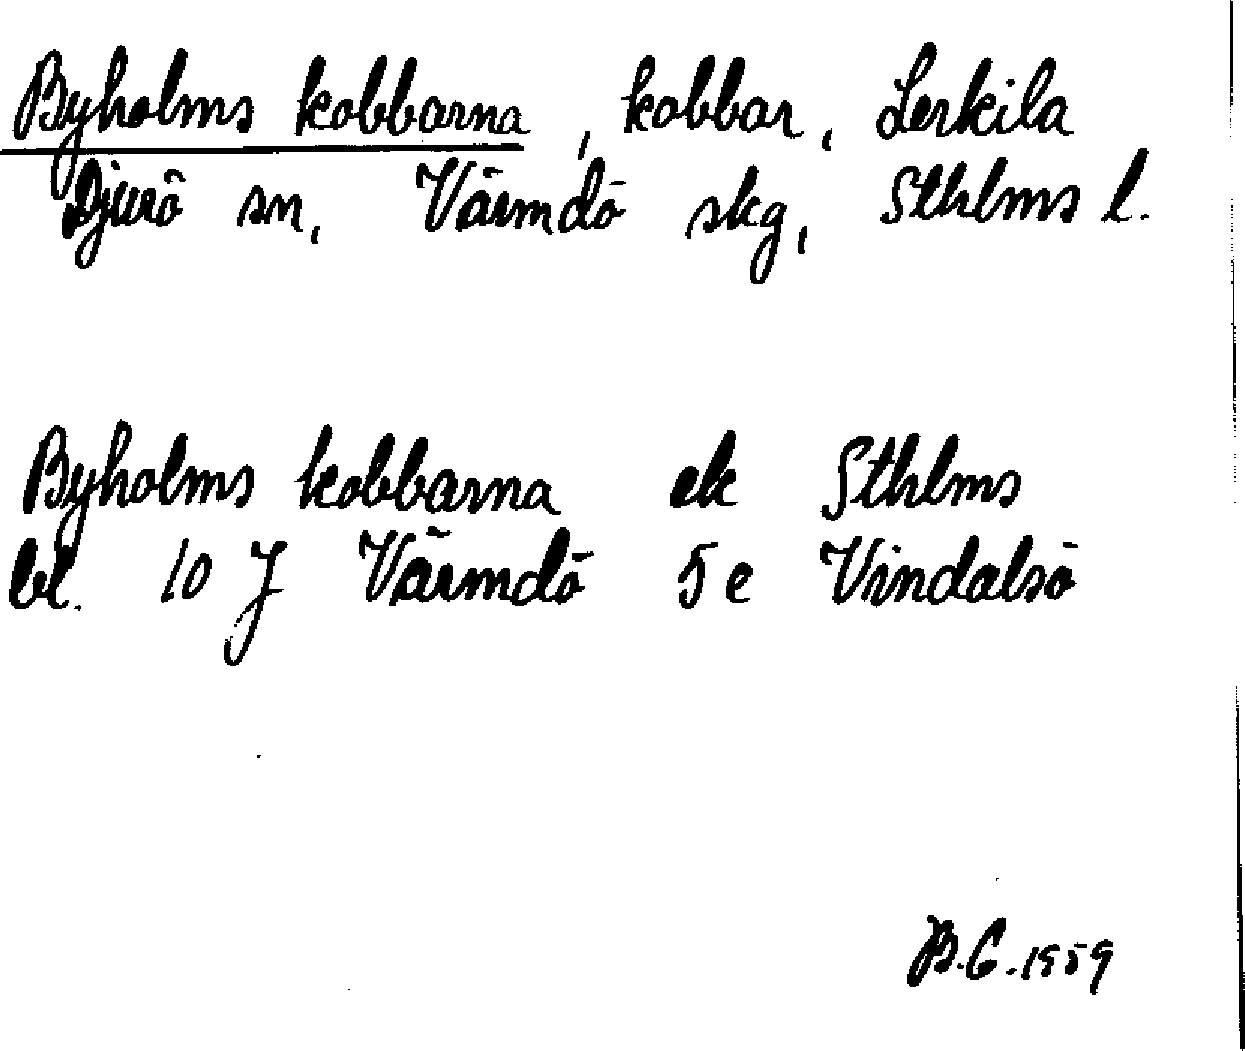 Byholms kobbarna, kobbar, Lerkila
Djurö sn, Värmdö skg, Sthlms l.
Byholms kobbarna ek Sthlms
bl. 10 J Värmdö 5 e Vindalsö
B.C. 1959